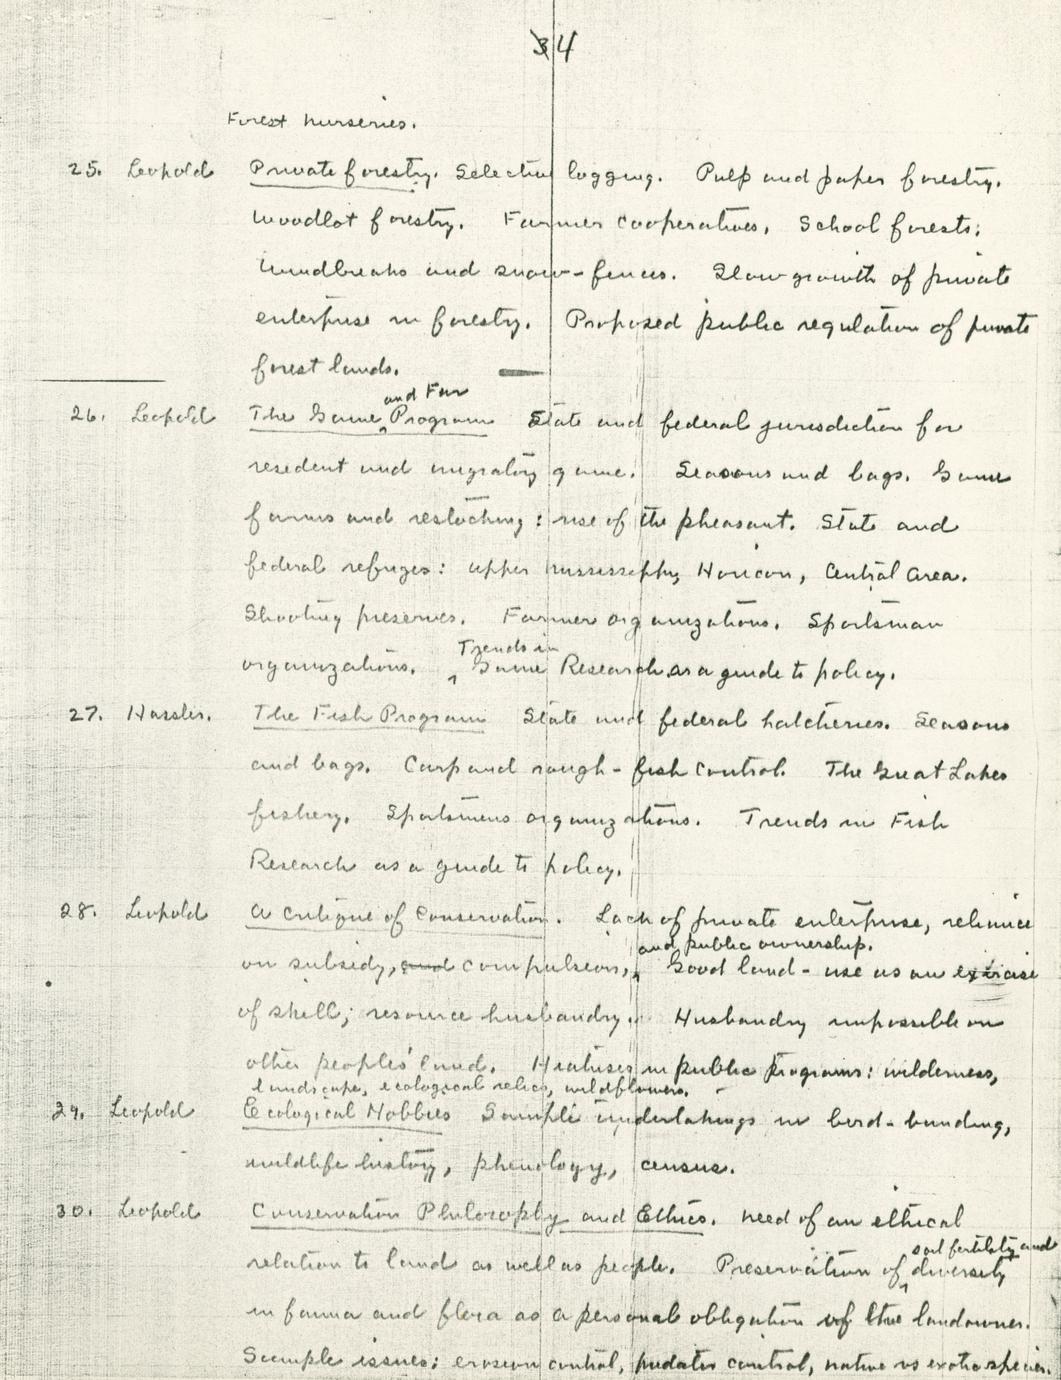 34
Forest nurseries.
25. Leopold Private forestry. Selective logging. Pulp and paper forestry.
Woodlot forestry. Farmer cooperatives. School forests.
Windbreaks and snow-fences. Slow growth of private
enterprise in forestry. Proposed public regulation of private
forest lands.
and Fur
26. Leopold The Game Program State and federal jurisdiction for
resident and migratory game. Seasons and bags. Game
farms and restocking: rise of the pheasant. State and
federal refuges: upper Mississippi, Horicon, Central Area.
Shooting preserves. Farmer organizations. Sportsman
Trends in
organizations. Game Research as a guide to policy.
27. Hassler. The Fish Program State and federal hatcheries. Seasons
and bags. Carp and rough-fish control. The Great Lakes
fishery. Sportsmens organizations. Trends in Fish
Research as a guide to policy.
28. Leopold A Critique of Conservation. Lack of private enterprise, reliance
and public ownership.
on subsidy, and compulsion, Good land-use as an exercise
of skill; resource husbandry. Husbandry impossible on
other peoples' land. Hiatuses in public programs: wilderness,
landscape, ecological relics, wildflowers.
29. Leopold Ecological Hobbies Sample undertakings in bird-banding,
wildlife history, phenology, census.
30. Leopold Conservation Philosophy and Ethics. need of an ethical
soil fertility and
relation to land as well as people. Preservation of diversity
in fauna and flora as a personal obligation of the landowner.
Sample issues: erosion control, predator control, native vs exotic species.